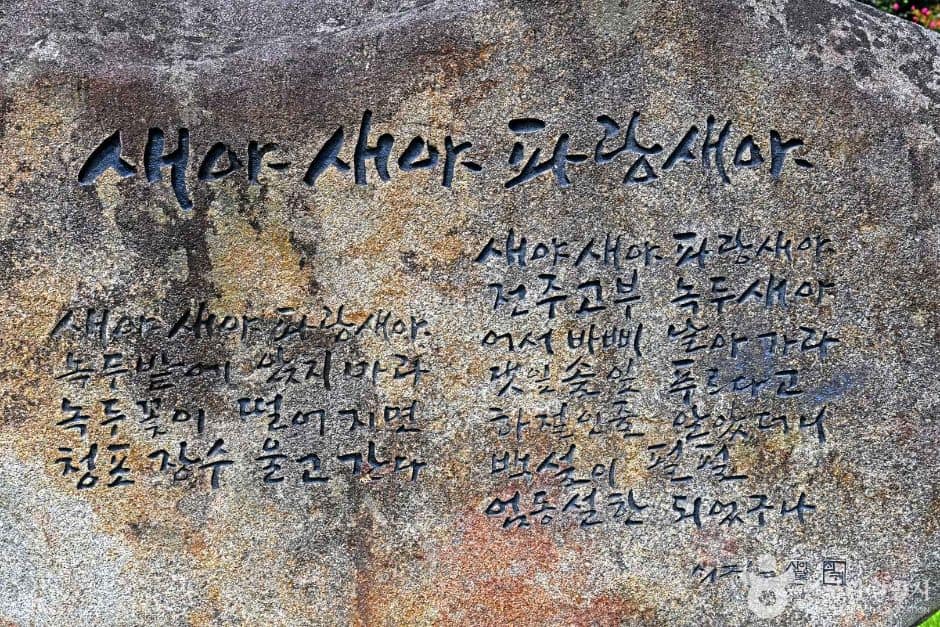 새야 새야 파랑새야
새야 새야 파랑새야
녹두밭에 앉지마라
녹두꽃이 떨어지면
청포 장수 울고 간다
새야 새야 파랑새야
전주고부 녹두새야
어서 바삐 날아 가라
댓잎 솔잎 푸르다고
하절인줄 알았더니
백설이 펄펄
엄동설한 되었구나